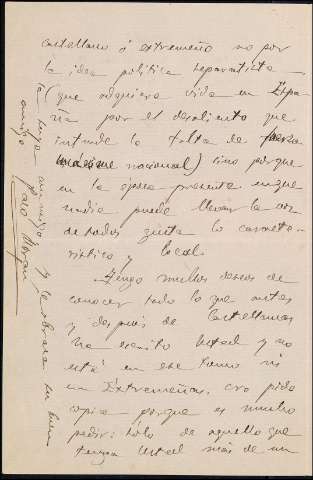 castellano ó extremeño no por
la idea politica separatista
(que adquiera vida en Espa-
ña por el desaliento que
infunde la falta de fuerza
nacional) sino porque
en la época presente en que
nadie puede llevar la voz
de todos gusta lo caracte-
ristico y local.
Tengo muchos deseos de
conocer todo lo que antes
y despues de Castellanas
ha escrito Usted y no
está en ese tomo ni
en Extremeñas. No pido
copia porque es mucho
pedir: solo de aquello que
tenga Usted más de un
y le abraza su buen
amigo